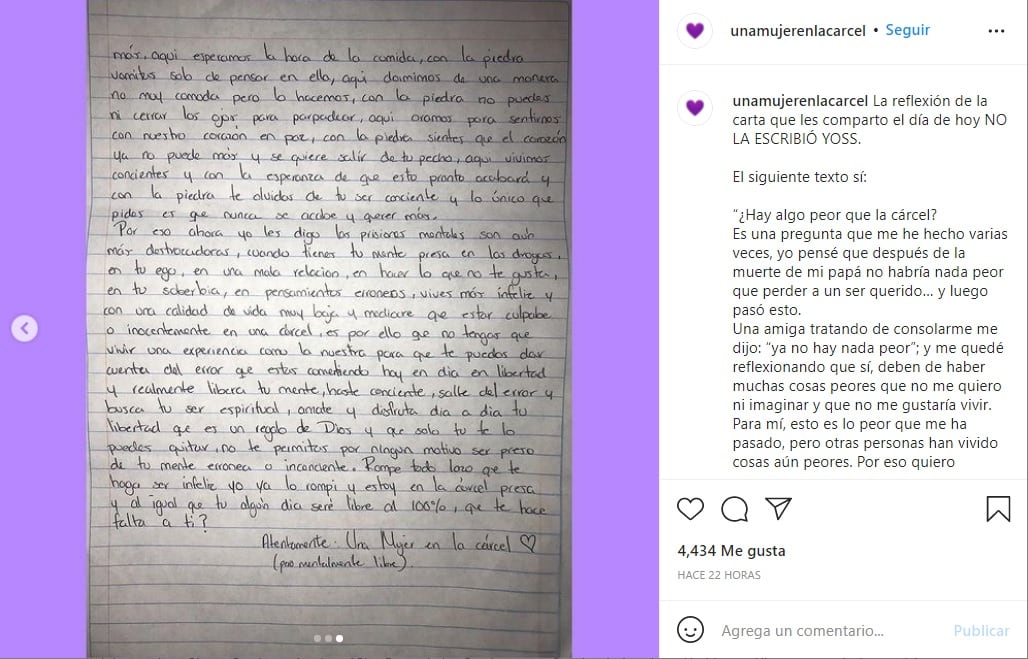 más, aqui esperamos la hora de la comida, con la piedra
vomitas solo de pensar en ella, aqui dormimos de una manera
no muy comoda pero lo hacemos, con la piedra no puedes
ni cerrar los ojos para parpadear, aqui oramos para sentirnos
con nuestro corazón en paz, con la piedra sientes que el corazón
ya no puede más y se quiere salir de tu pecho, aqui vivimos
concientes y con la esperanza de que esto pronto acabará y
con la piedra te olvidas de tu ser conciente y lo único que
pides es que nunca se acabe y querer más.
Por eso ahora yo les digo las prisiones mentales son aun
más destrozadoras, cuando tienes tu mente presa en las drogas,
en tu ego, en una mala relacion, en hacer lo que no te gusta,
en tu soberbia, en pensamientos erroneos, vives más infeliz y
con una calidad de vida muy baja y mediocre que estar culpable
o inocentemente en una cárcel, es por ello que no tengas que
vivir una experiencia como la nuestra para que te puedas dar
cuenta del error que estas cometiendo hoy en dia en libertad
y realmente libera tu mente, haste conciente, salte del error y
busca tu ser espiritual, amate y disfruta dia a dia tu
libertad que es un regalo de Dios y que solo tu te lo
puedes quitar, no te permitas por ningún motivo ser preso
de tu mente erronea o inconciente. Rompe todo lazo que te
haga ser infeliz yo ya lo rompi y estoy en la cárcel presa
y al igual que tu algún dia seré libre al 100%, que te hace
falta a ti?
Atentamente: Una Mujer en la cárcel ♡
(pero mentalmente libre).
unamujerenlacarcel • Seguir
unamujerenlacarcel La reflexión de la
carta que les comparto el día de hoy NO
LA ESCRIBIÓ YOSS.
El siguiente texto sí:
"¿Hay algo peor que la cárcel?
Es una pregunta que me he hecho varias
veces, yo pensé que después de la
muerte de mi papá no habría nada peor
que perder a un ser querido... y luego
pasó esto.
Una amiga tratando de consolarme me
dijo: "ya no hay nada peor"; y me quedé
reflexionando que sí, deben de haber
muchas cosas peores que no me quiero
ni imaginar y que no me gustaría vivir.
Para mí, esto es lo peor que me ha
pasado, pero otras personas han vivido
cosas aún peores. Por eso quiero
4,434 Me gusta
HACE 22 HORAS
Agrega un comentario... Publicar